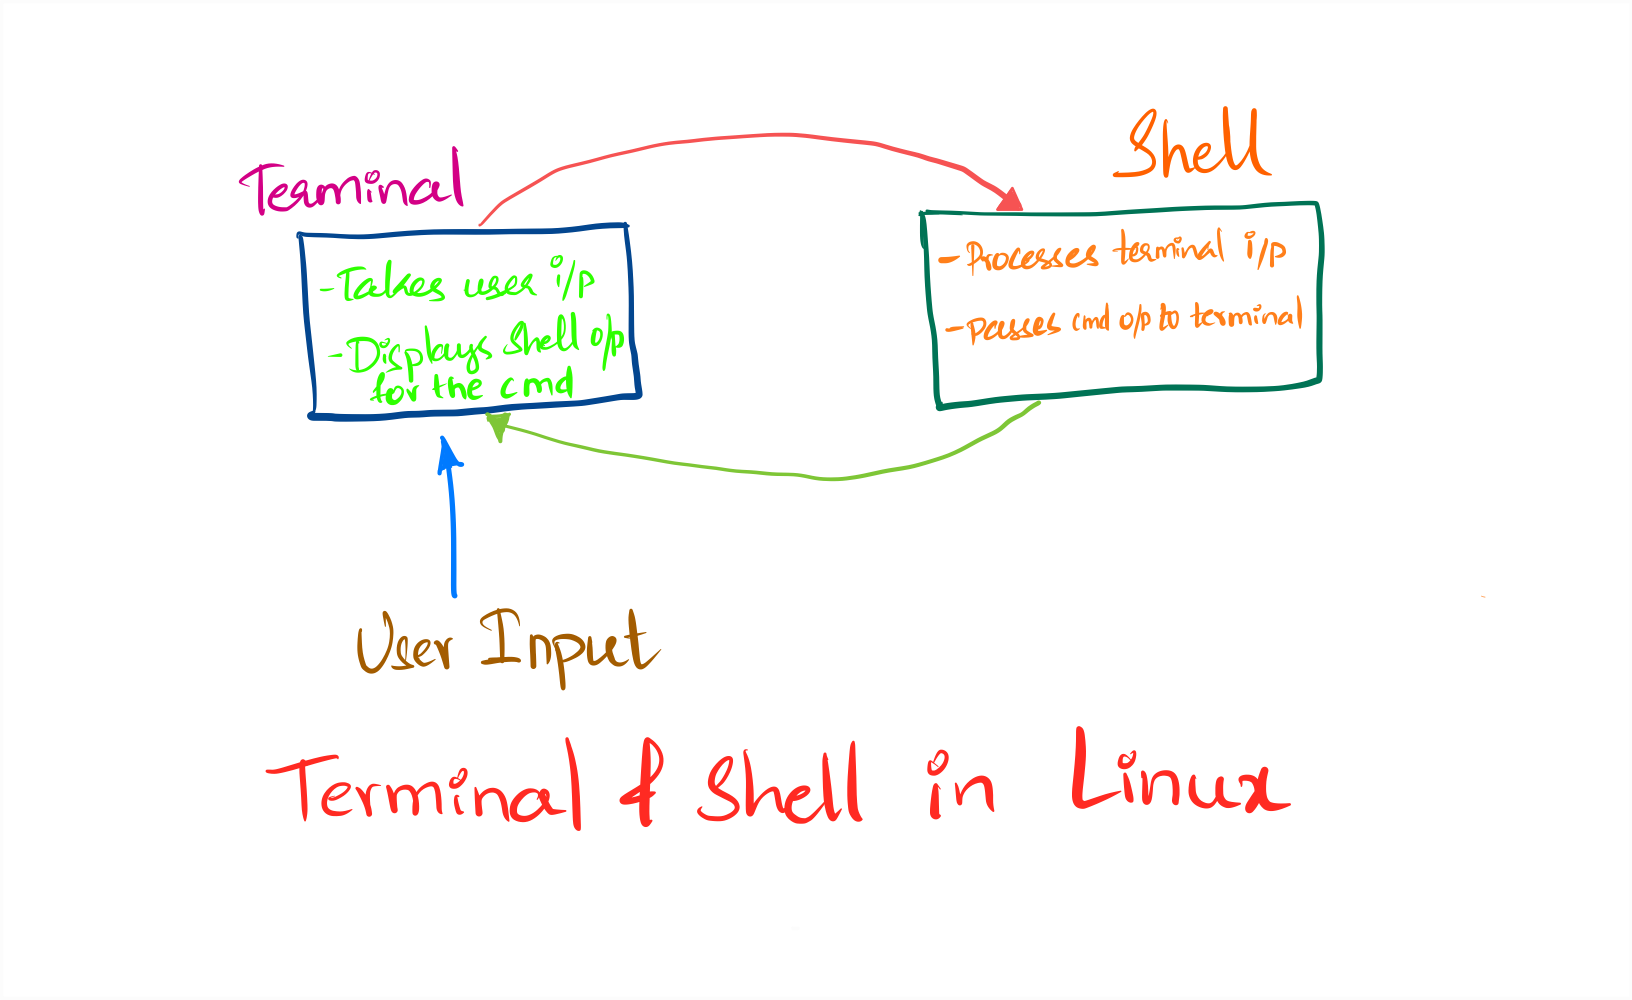 Terminal
- Takes user i/p
- Displays Shell o/p
for the cmd
Shell
- Processes terminal i/p
- passes cmd o/p to terminal
User Input
Terminal & Shell in Linux